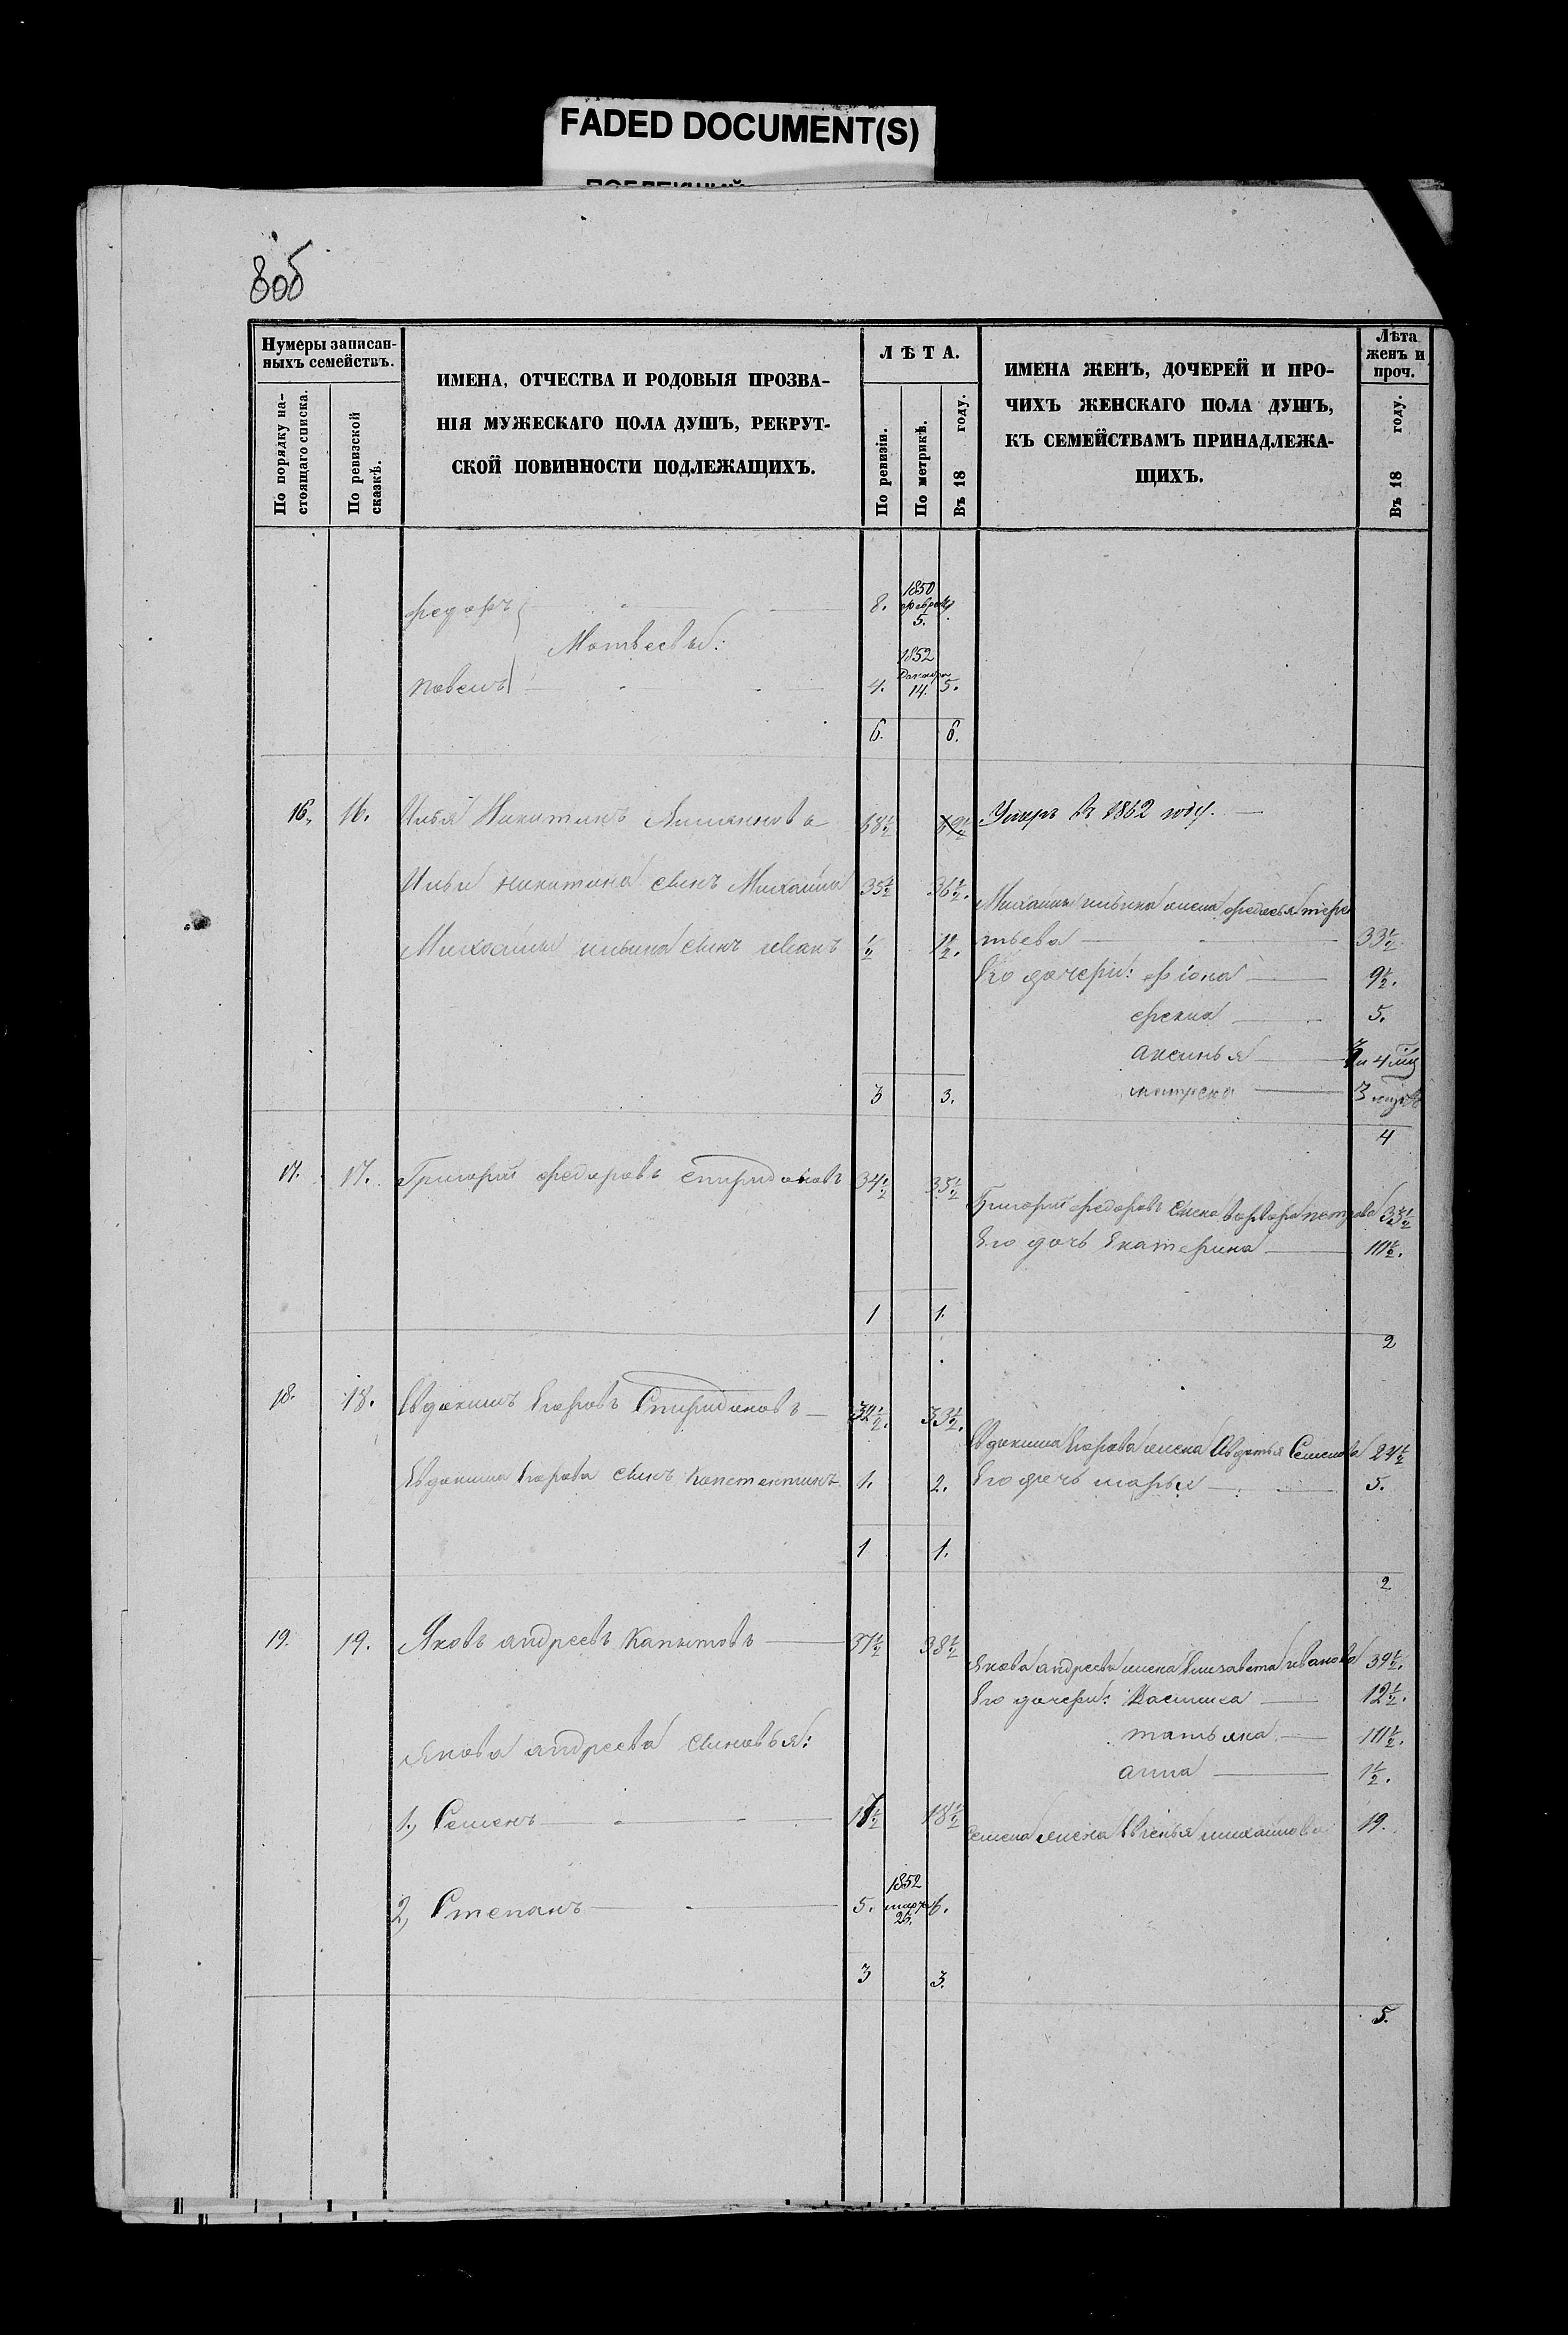 FADED DOCUMENT(S)
8об
Нумеры записан-
ныхъ семействъ.
По порядку на-
стоящаго списка.
По ревизской
сказкѣ.
ИМЕНА, ОТЧЕСТВА И РОДОВЫЯ ПРОЗВА-
НІЯ МУЖЕСКАГО ПОЛА ДУШЪ, РЕКРУТ-
СКОЙ ПОВИННОСТИ ПОДЛЕЖАЩИХЪ.
ЛѢТА.
По ревизіи.
По метрикѣ.
Въ 18 году.
ИМЕНА ЖЕНЪ, ДОЧЕРЕЙ И ПРО-
ЧИХЪ ЖЕНСКАГО ПОЛА ДУШЪ,
КЪ СЕМЕЙСТВАМЪ ПРИНАДЛЕЖА-
ЩИХЪ.
Лѣта
женъ и
проч.
Въ 18 году.
федоръ 8. 1850 февраля 5.
Матвеевы:
павелъ 4. 1852 Декабря 14. 5.
6. 6.
16. 16. Илья Никитинъ 68½ 69½ Умеръ въ 1862 году.
Ильи никитина сынъ Михаила 35½ 36½. Михайлы ильина жена федосья терен
Михайлы ильина сынъ иванъ ½ 1½. тьева 33½
Его дочери: фіона 9½.
фекла 5.
аксинья и 4 мц
матрена 3
3 3.
4
17. 17. Григорій федоровъ спиридоновъ 34½ 35½
Григорія федорова жена варвара петрова 33½
Его дочь Екатерина 11½.
1 1.
2
18. 18. Евдокимъ Егоровъ Спиридоновъ 32½. 33½.
Евдокима Егорова жена Авдотья Семенова 24½
Евдокима Егорова сынъ Константинъ 1. 2. Его дочь марья 5.
1 1.
2
19. 19. Яковъ андреевъ Капытовъ 37½ 38½
Якова андреева жена Елизавета иванова 39½.
Его дочери: Василиса 12½.
Якова андреева сыновья: татьяна 11½.
анна 1½.
1, Семенъ 17½ 18½ Семена жена Евгенья михайлова 19.
2, Степанъ 5. 1852 марта 26. 6.
3 3.
5.